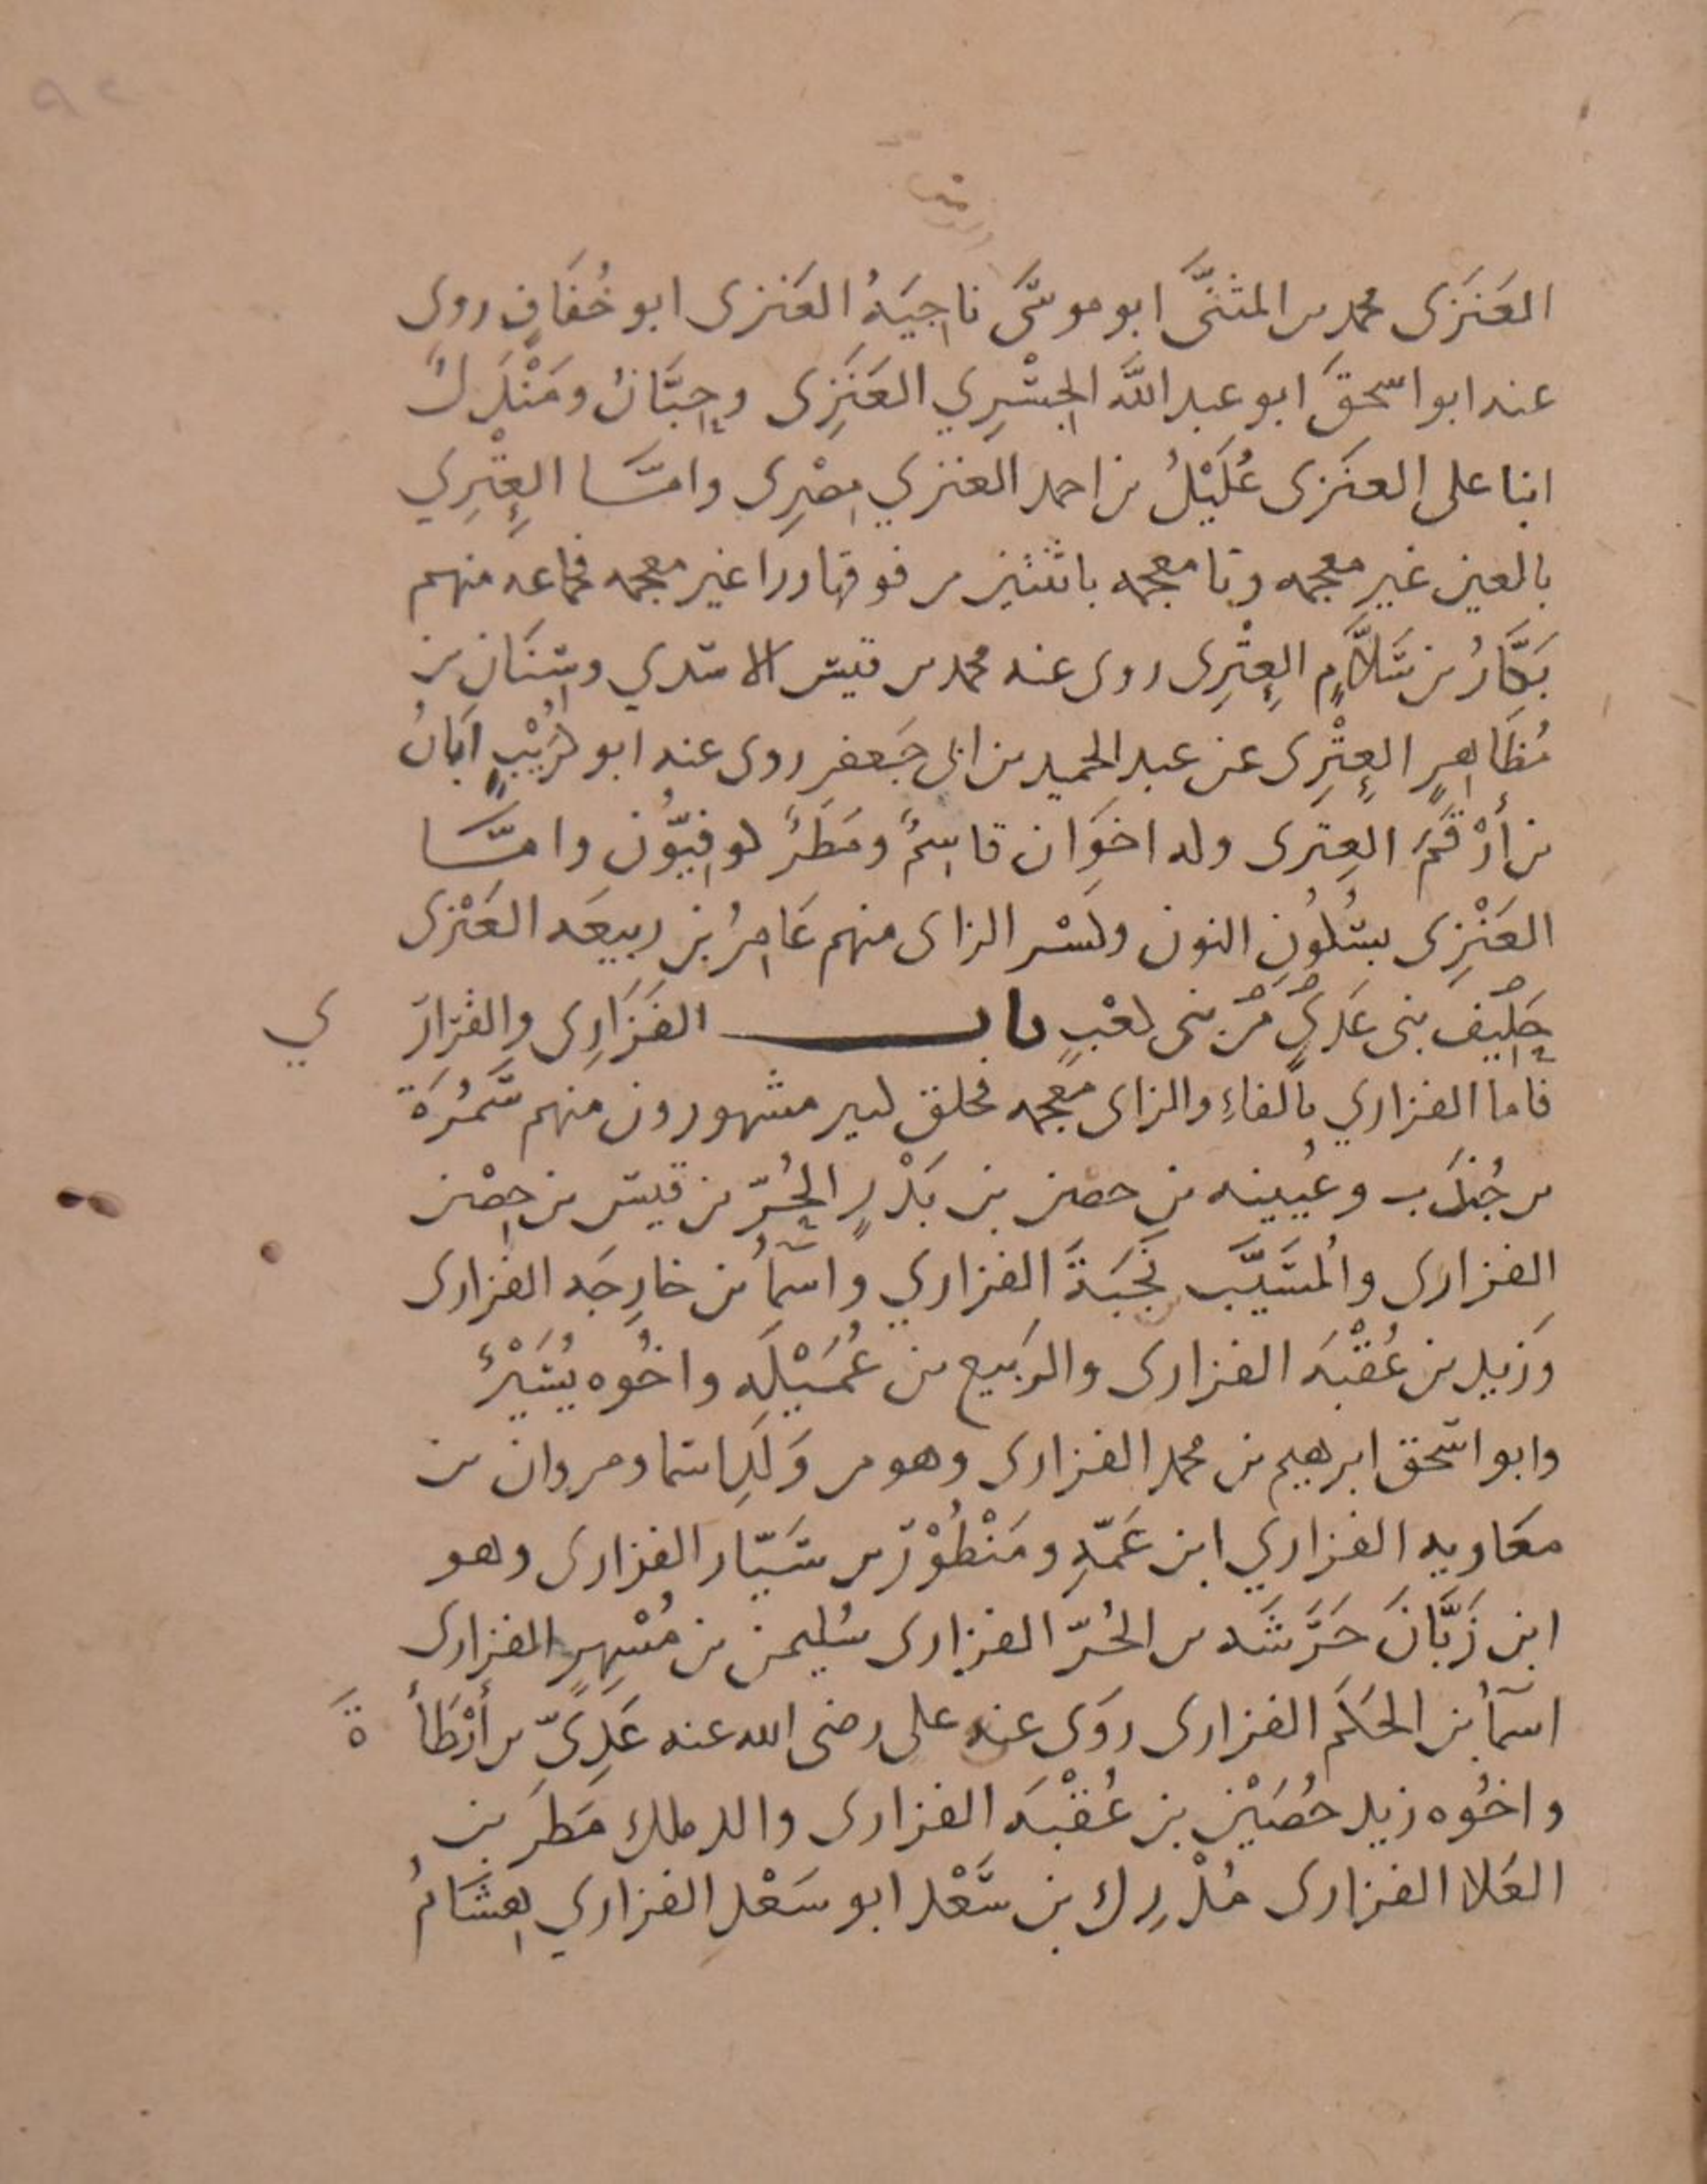 العَنَزَى محمد بن المثنَّى ابو موسَى ناجِيَةُ العَنزى ابو خُفَافٍ روى
عنه ابو اسحقَ ابو عبد اللَّه الجِسْرِي العَنَزِى وحِبَّانُ ومَنْدَلٌ
ابنا على العنَزى عُكَيْلُ بن احمد العنزي مِصْرِى وامَّا العِتْرِي
بالعين غير معجمه وتا معجمه باثنتين من فوقها ورا غير معجمه فجماعه منهم
بَكَّارُ بن سَلاَّمٍ العِتْرِى روى عنه محمد بن قيس الاسدي وسِنَان بن
مُظَاهِرٍ العِتْرِى عن عبد الحميد بن ابى جَعفر روى عنه ابو كُرَيْبٍ ابَانُ
بن أرْقَمَ العِترى وله اخوَان قاسِمٌ ومَطَرٌ كوفِيّوُن وامَّا
العَنْزِى بسُكُون النون وكسْر الزاى منهم عَامِرُ بن ربيعَه العَنْزى
حَلِيف بنى عَدىٍّ مِنْ بنى كعْبٍ باب الفَزَارِى والقرَارِي
فاما الفزاري بالفاءِ والزاى معجمه فخلق كبير مشهورون منهم سَمُرَة
بن جُندَب وعُيينه بن حصن بن بَدْرٍ الحُرّ بن قيس بن حِصْن
الفزارى والمُسَيَّب نجَبَةَ الفزاري واسمآُ بن خارِجَه الفزارى
وَزَيد بن عُقْبَه الفزارى والرَبيع بن عُمَيْلَه واخُوه يُسَيْرٌ
وابو اسحق ابرهيم بن محمد الفزارى وهو من وَلَدِ اسما ومروان بن
معَاويه الفزاري ابن عَمّهِ ومَنْظُوْر بن سَيّار الفزارى وهو
ابن زَبَّانَ خَرَشَه بن الحُرّ الفزارى سُليمن بن مُسْهِرٍ الفزارى
اسمآُ بن الحَكَم الفزارى روَى عنه على رضى الله عنه عَدِىّ بن أرْطَأةَ
واخُوه زيد حُصَيْن بن عُقْبَه الفزارى والد ملك مَطَر بن
العَلا الفزارى مُدْرِك بن سَعْد ابو سَعْدِ الفزاري هِشَامُ